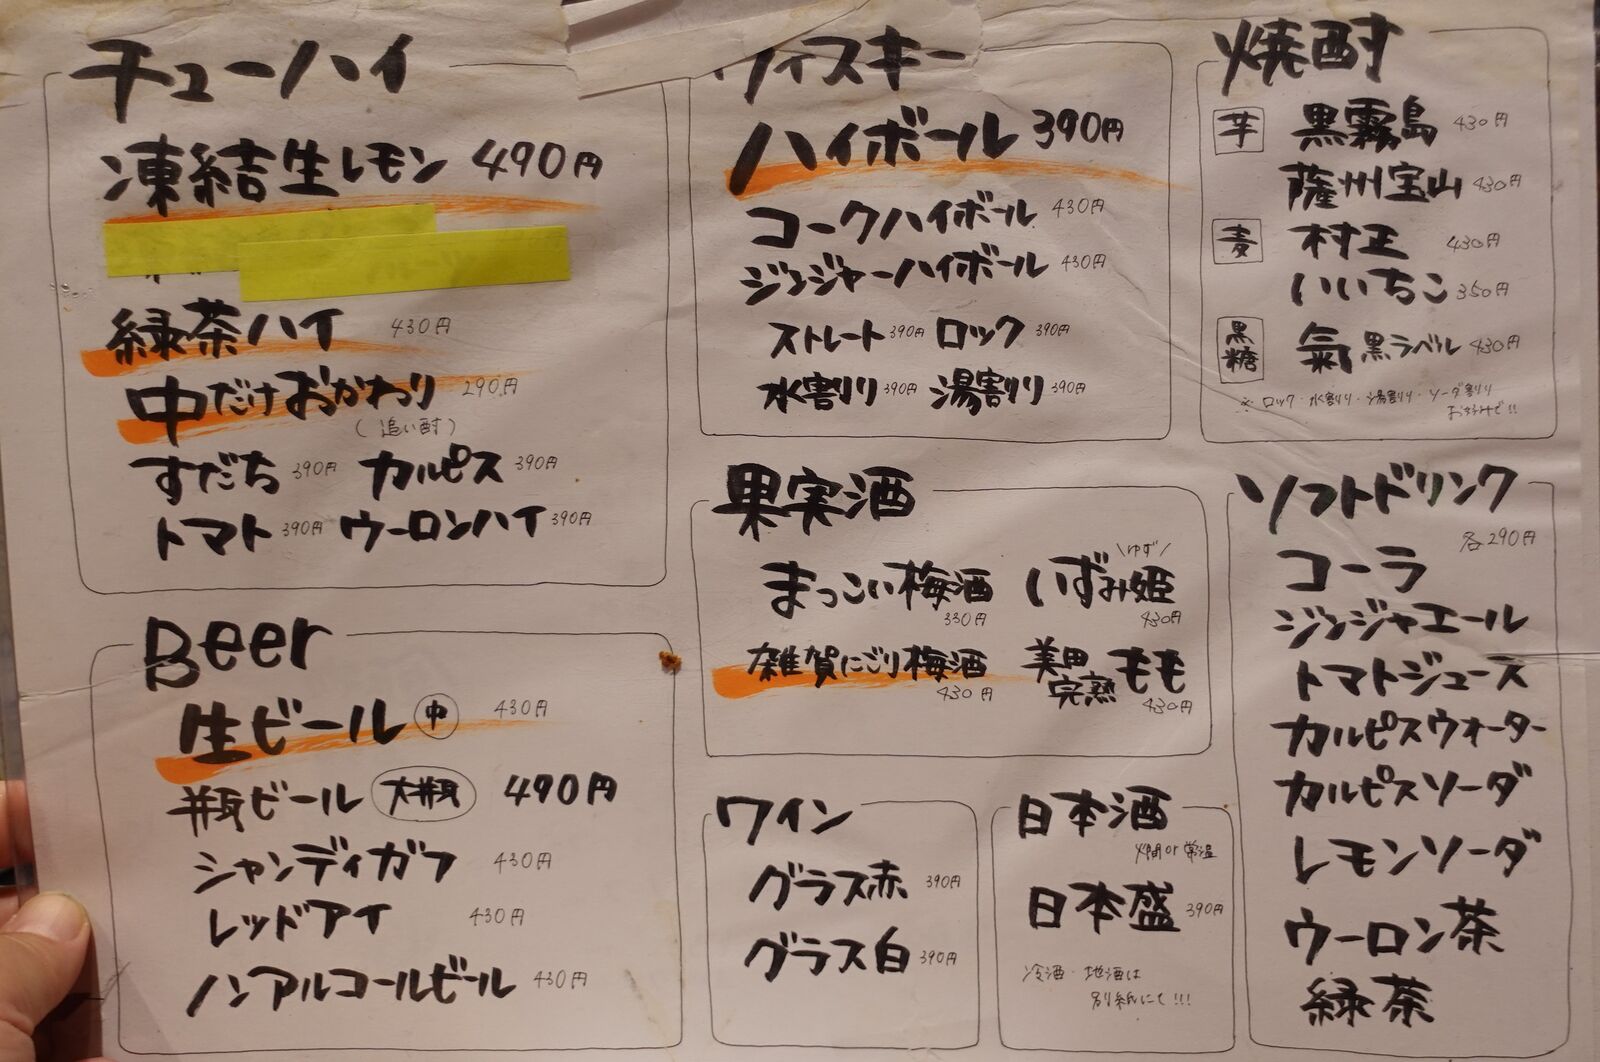 チューハイ
凍結生レモン 490円
緑茶ハイ 430円
中だけおかわり 290円
(追い酎)
すだち 390円 カルピス 390円
トマト 390円 ウーロンハイ 390円
Beer
生ビール 中 430円
瓶ビール 大瓶 490円
シャンディガフ 430円
レッドアイ 430円
ノンアルコールビール 430円
ウィスキー
ハイボール 390円
コークハイボール 430円
ジンジャーハイボール 430円
ストレート 390円 ロック 390円
水割り 390円 湯割り 390円
果実酒
まっこい梅酒 330円
\ゆず/
いずみ姫 430円
雑賀にごり梅酒 430円
美田完熟もも 430円
ワイン
グラス赤 390円
グラス白 390円
日本酒
燗 or 常温
日本盛 390円
冷酒・地酒は
別紙にて!!!
焼酎
芋 黒霧島 430円
薩州宝山 430円
麦 村正 430円
いいちこ 350円
黒糖 氣 黒ラベル 430円
※ロック・水割り・湯割り・ソーダ割り
お好みで!!
ソフトドリンク
各290円
コーラ
ジンジャエール
トマトジュース
カルピスウォーター
カルピスソーダ
レモンソーダ
ウーロン茶
緑茶